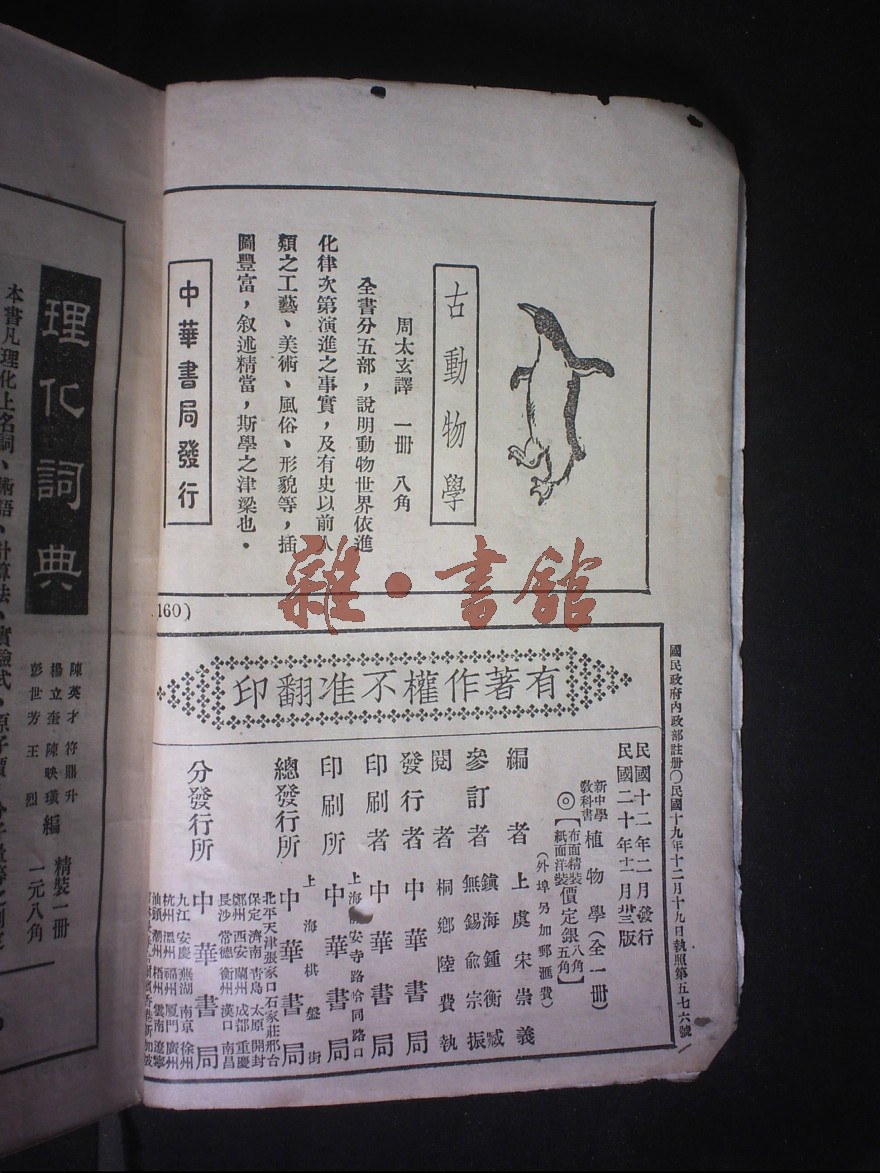 古動物學
周太玄譯 一冊 八角
全書分五部，說明動物世界依進
化律次第演進之事實，及有史以前人
類之工藝、美術、風俗、形貌等，插
圖豐富，叙述精當，斯學之津梁也。
中華書局發行
160)
雜·書館
有著作權不准翻印
國民政府內政部註册〇民國十九年十二月十九日執照第五七六號
民國十二年二月發行
民國二十年十一月版
新中學教科書 植物學(全一冊)
◎【布面精裝 紙面洋裝】價定銀【八角 五角】
(外埠另加郵滙費)
編者 上虞宋崇義
參訂者 鎮海鍾衡臧
無錫俞宗振
閱者 桐鄉陸費執
發行者 中華書局
印刷者 中華書局
上海靜安寺路哈同路口
印刷所 中華書局
上海棋盤街
總發行所 中華書局
分發行所 中華書局
北平天津張家口石家莊邢台
保定 濟南 青島 太原 開封
鄭州 西安 蘭州 成都 重慶
長沙 常德 衡州 漢口 南昌
九江 安慶 蕪湖 南京 徐州
杭州 溫州 福州 厦門 廣州
汕頭 潮州 梧州 雲南 遼寧
理化詞典
陳英才 符鼎升
楊立奎 陳映璜 編
彭世芳 王烈
精裝一冊
一元八角
本書凡理化上名詞、術語、計算法、實驗式、原子價